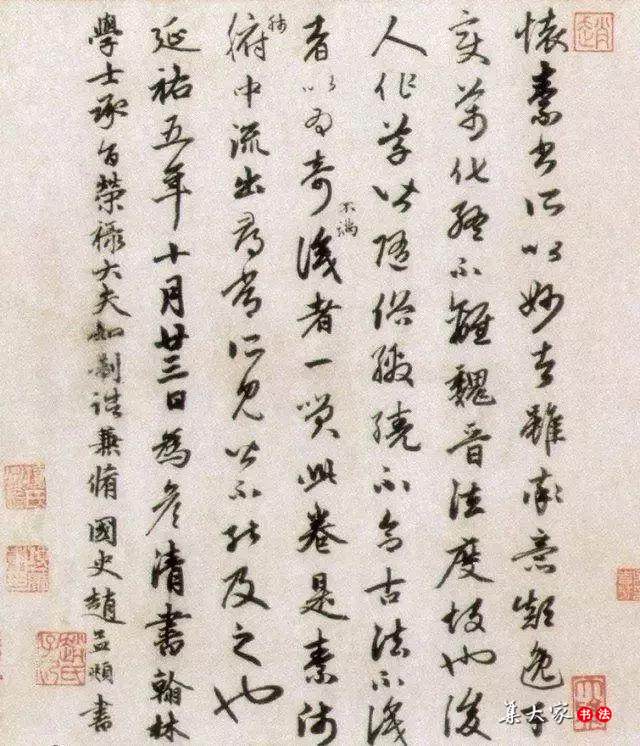 懷素書所以妙者雖率意顛逸千
變萬化終不離魏晉法度故也後
人作草皆隨俗繳繞不合古法不識
者以為奇不滿識者一笑此卷是素師
肺腑中流出尋常所見皆不能及之也
延祐五年十月廿三日為彥清書翰林
學士承旨榮祿大夫知制誥兼脩國史趙孟頫書
趙氏子昂
集大家书法